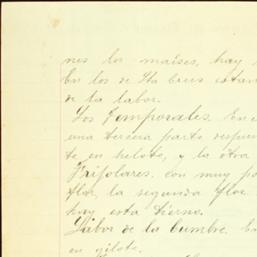 nes los maises, hay
En los de Sta Cruz estan
de la labor.
Los Temporales. En e
una tercera parte despun
te en helote, y la otra
Frijolares. con muy po
flor, la segunda flor
hay esta tierno.
Labor de la Cumbre. ha
en gilote.